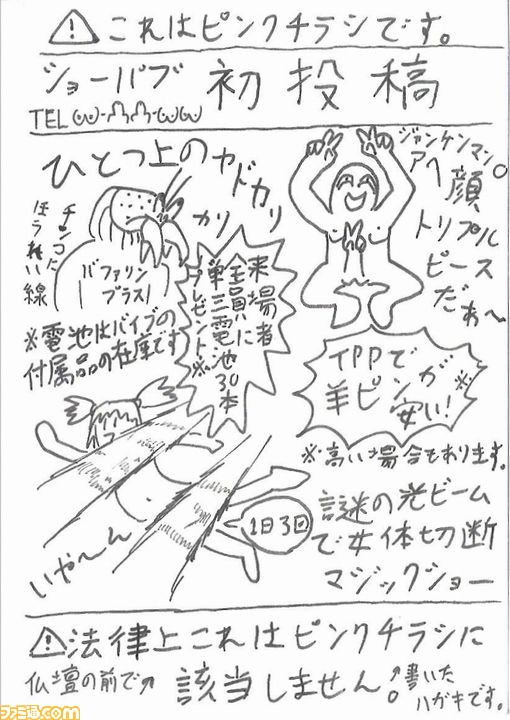 ⚠これはピンクチラシです。
ショーパブ 初投稿
TEL
ひとつ上のヤドカリ
カリ
チンコに
ほうれい線
バファリン
プラス!
※電池はバイブの
付属品の在庫です
来場者
全員に
単三電池30本
プレゼント※
ジャンケンマン。
アヘ顔
トリプル
ピース
だぁ〜
TPPで
羊ピンが※
安い!
※高い場合もあります。
いや〜ん
1日3回
謎の光ビーム
で女体切断
マジックショー
⚠法律上これはピンクチラシに
該当しません。
仏壇の前で↗
↗書いた
ハガキです。
ファミ通.com